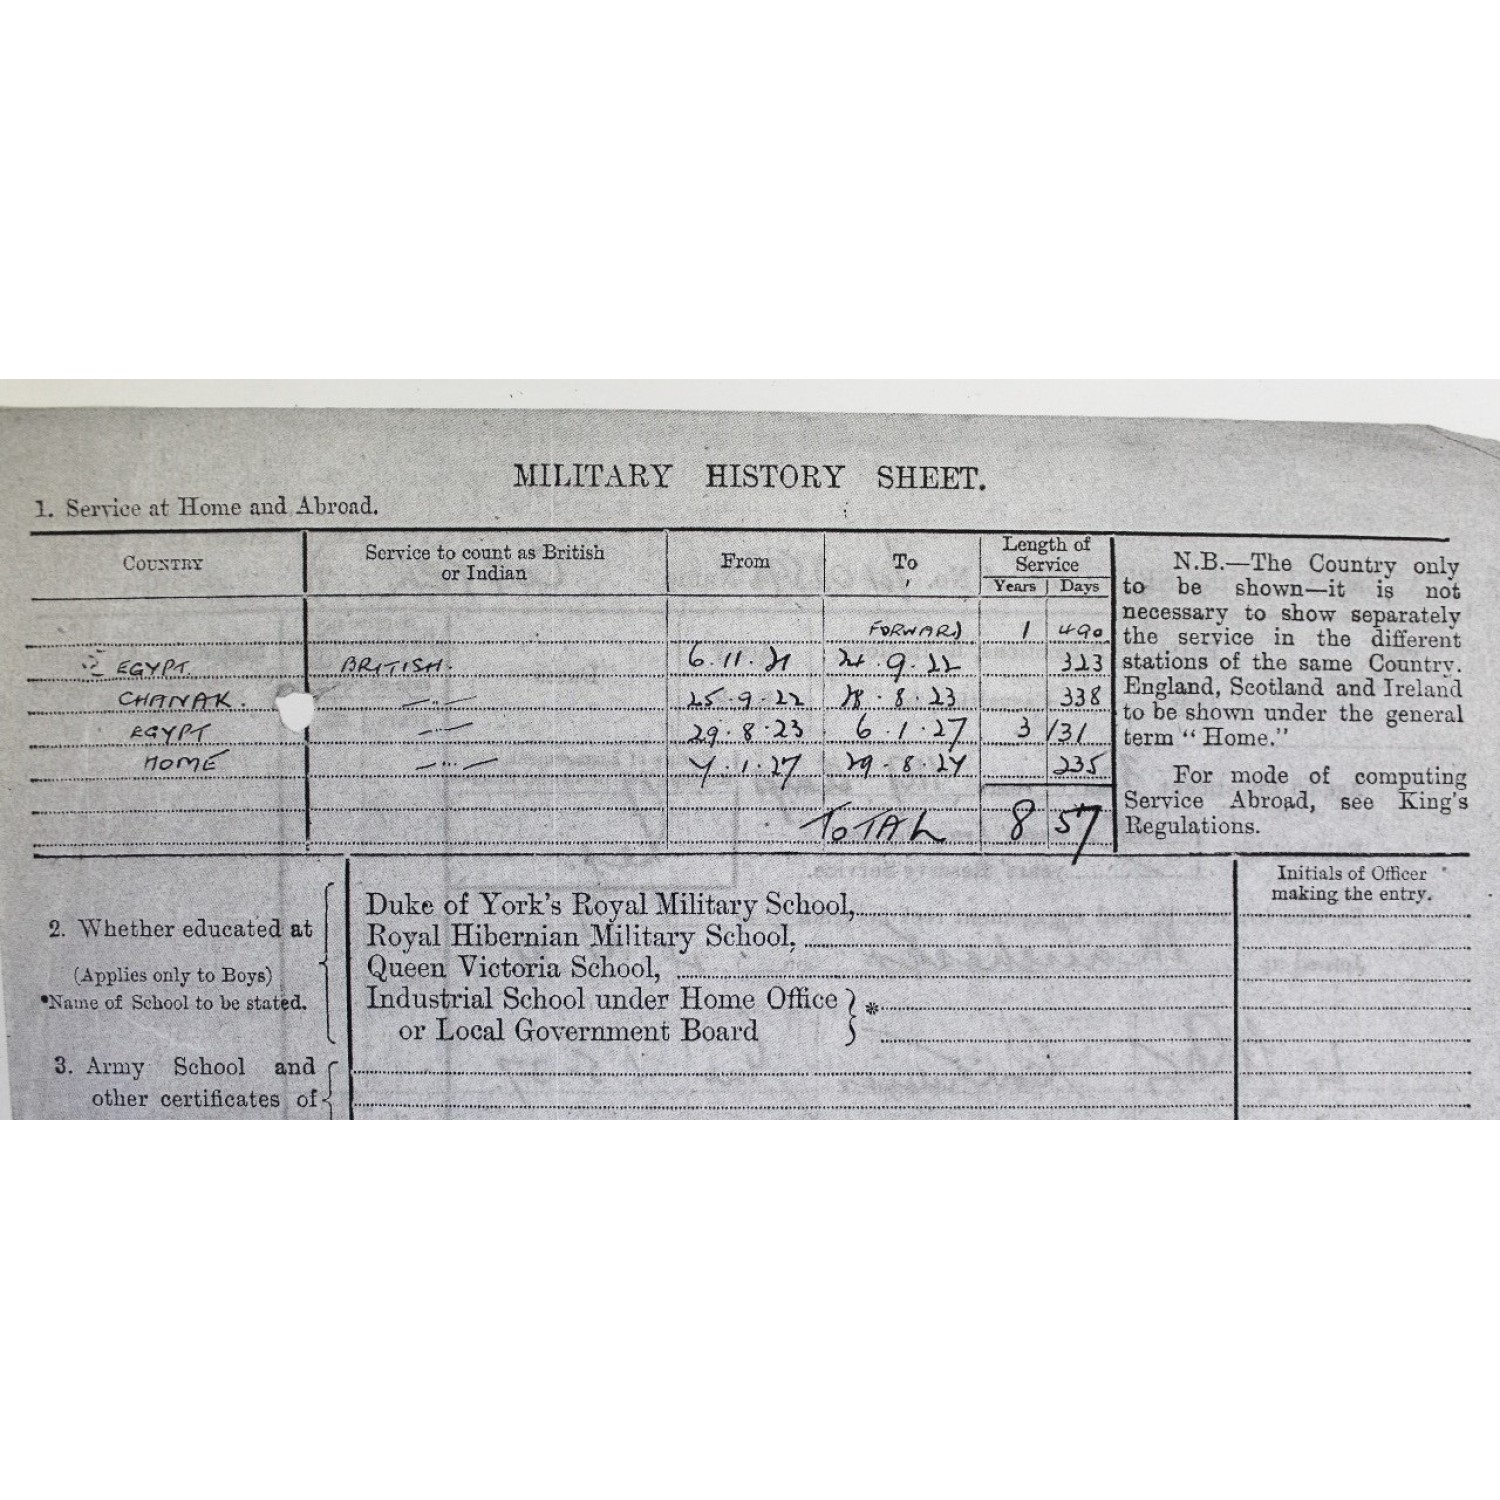 MILITARY HISTORY SHEET.
1. Service at Home and Abroad.
COUNTRY Service to count as British or Indian From To Length of Service Years Days
FORWARD 1 490
EGYPT. BRITISH. 6.11.21 24.9.22 323
CHANAK. —"— 25.9.22 28.8.23 338
EGYPT —"— 29.8.23 6.1.27 3 131
HOME —"— 7.1.27 29.8.27 235
TOTAL 8 57
N.B.—The Country only
to be shown—it is not
necessary to show separately
the service in the different
stations of the same Country.
England, Scotland and Ireland
to be shown under the general
term "Home."
For mode of computing
Service Abroad, see King's
Regulations.
Initials of Officer
making the entry.
2. Whether educated at
(Applies only to Boys)
*Name of School to be stated.
Duke of York's Royal Military School,
Royal Hibernian Military School,
Queen Victoria School,
Industrial School under Home Office
or Local Government Board
*
3. Army School and
other certificates of